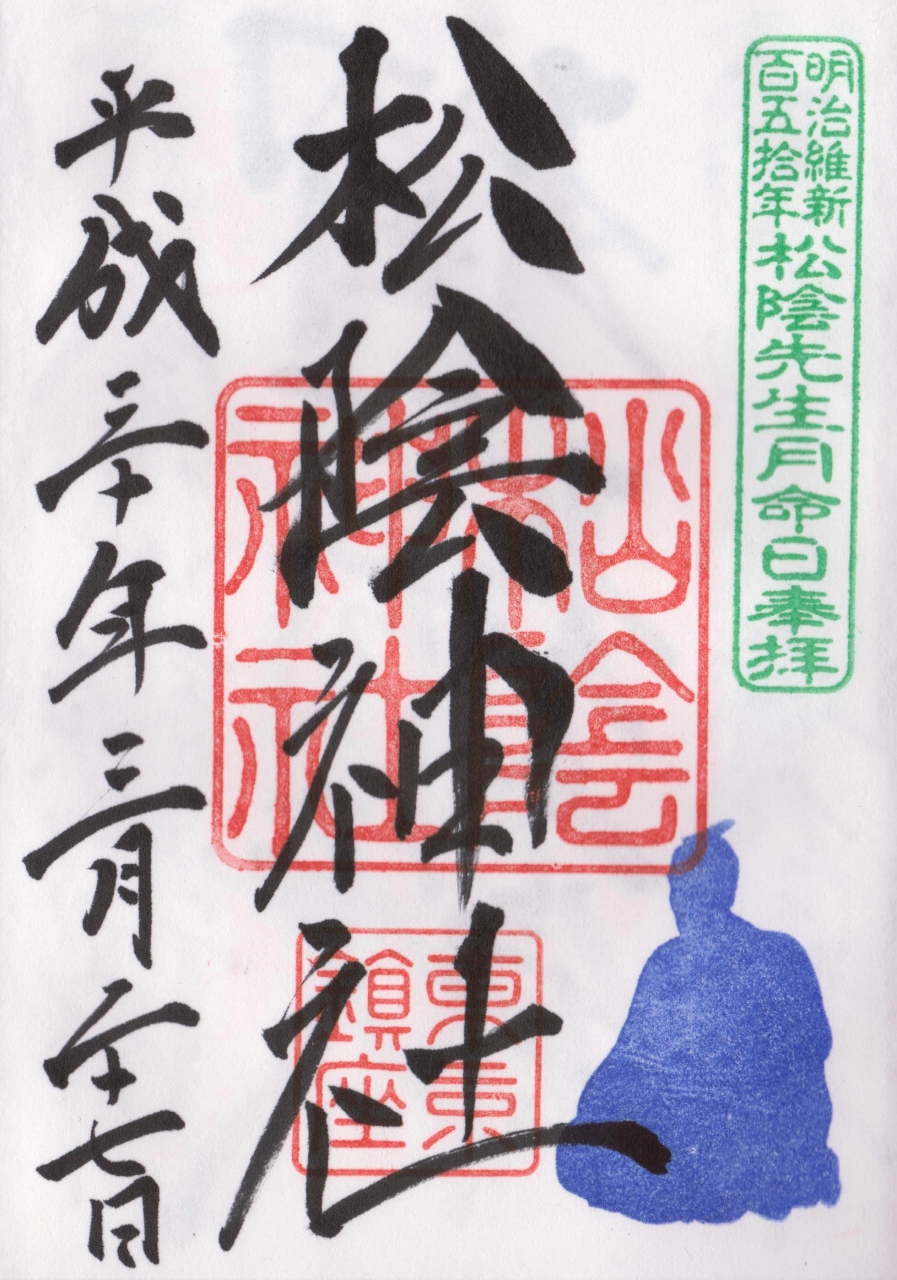 明治維新
百五拾年
松陰先生月命日奉拝
松陰神社
松陰
神社
東京
鎮座
平成三十年三月二十七日